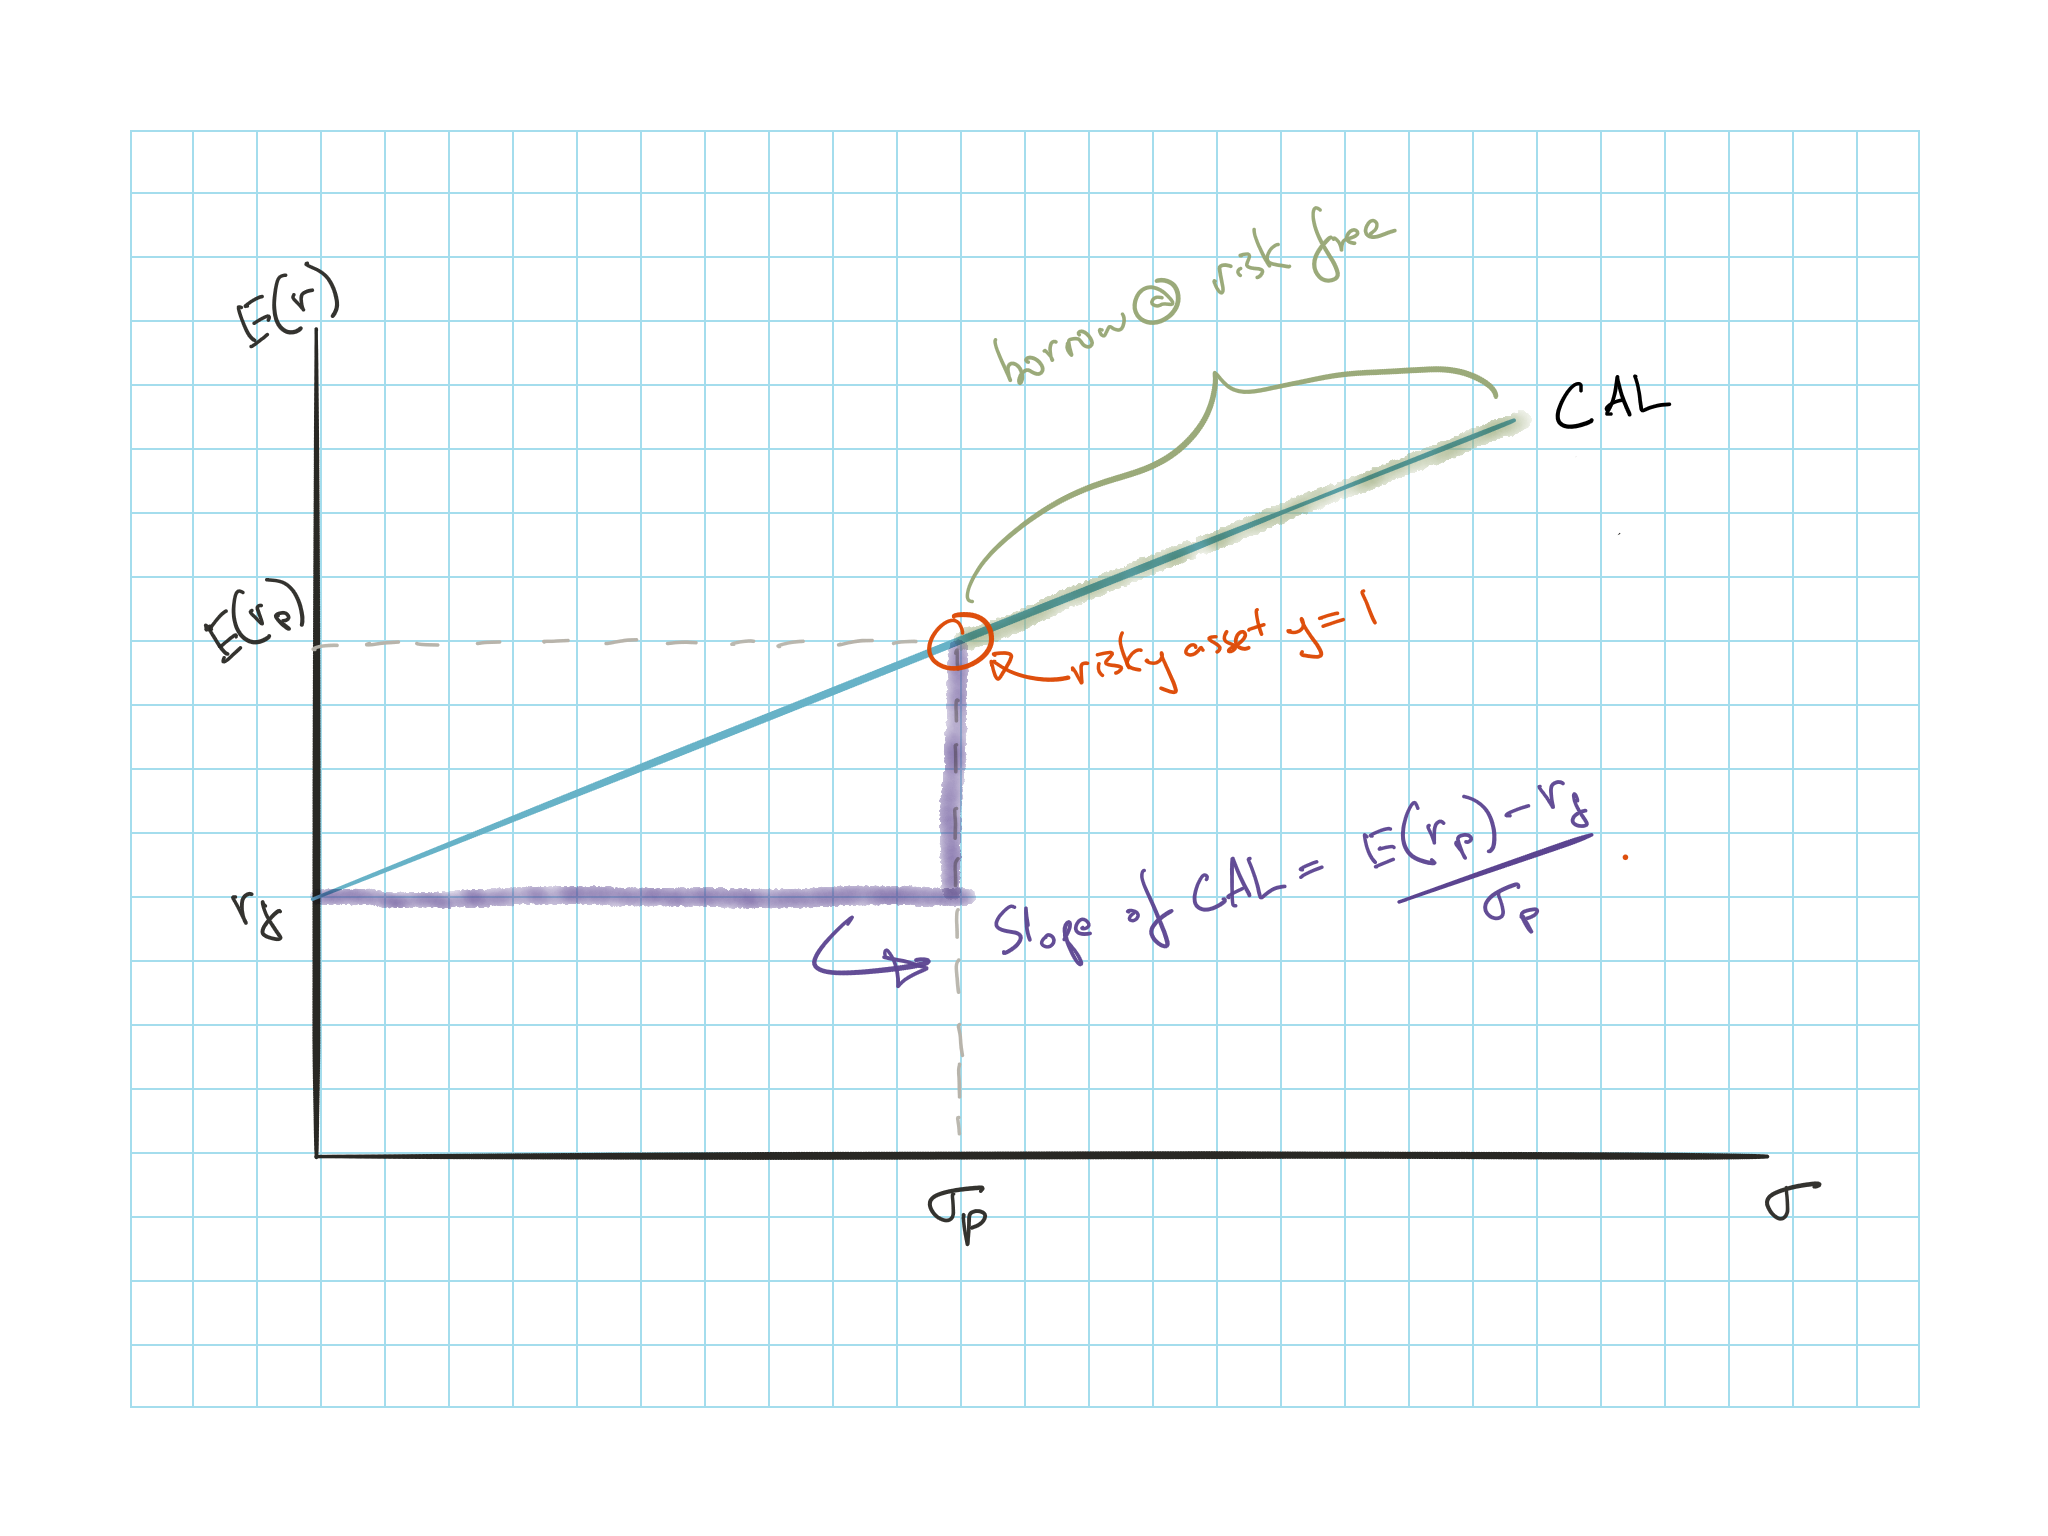 borrow @ risk free
E(r)
CAL
E(rp)
risky asset y=1
Slope of CAL = E(rp) - rf
σp
rf
σp
σ